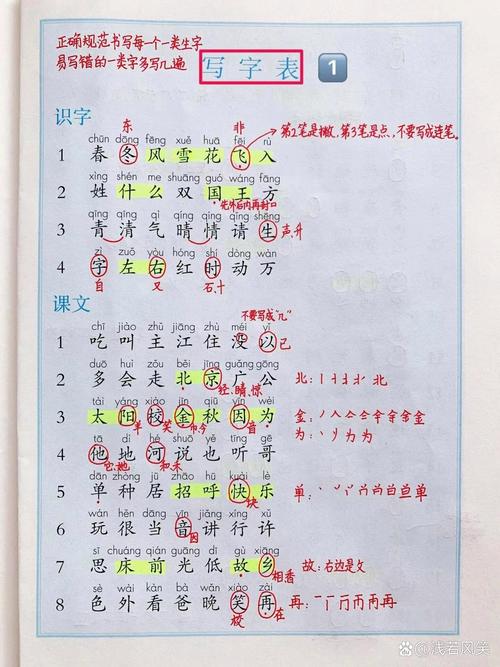 正确规范书写每一个一类生字
易写错的一类字多写几遍
写字表 1
识字
东 非
chūn dōng fēng xuě huā fēi rù
1 春 冬 风 雪 花 飞 入
第2笔是撇,第3笔是点,不要写成连笔。
xìng shén me shuāng guó wáng fāng
2 姓 什 么 双 国 王 方
先外后内再封口
qīng qīng qì qíng qíng qǐng shēng
3 青 清 气 晴 情 请 生 声、升
zì zuǒ yòu hóng shí dòng wàn
4 字 左 右 红 时 动 万
自 又 石、十
课文
不要写成"几"
chī jiào zhǔ jiāng zhù méi yǐ
1 吃 叫 主 江 住 没 以 已
duō huì zǒu běi jīng guǎng gōng
2 多 会 走 北 京 广 公 北:北
经、睛、惊
tài yáng xiào jīn qiū yīn wèi
3 太 阳 校 金 秋 因 为 金:金
羊 笑 巾今 音 为:为
tā dì hé shuō yě tīng gē
4 他 地 河 说 也 听 哥
它、她 和、禾
dān zhǒng jū zhāo hū kuài lè
5 单 种 居 招 呼 快 乐 单:单
块
wán hěn dāng yīn jiǎng xíng xǔ
6 玩 很 当 音 讲 行 许
因
sī chuáng qián guāng dī gù xiāng
7 思 床 前 光 低 故 乡 故:右边是攵
相香
sè wài kàn bà wǎn xiào zài
8 色 外 看 爸 晚 笑 再 再:再
校 在
@浅若风笑